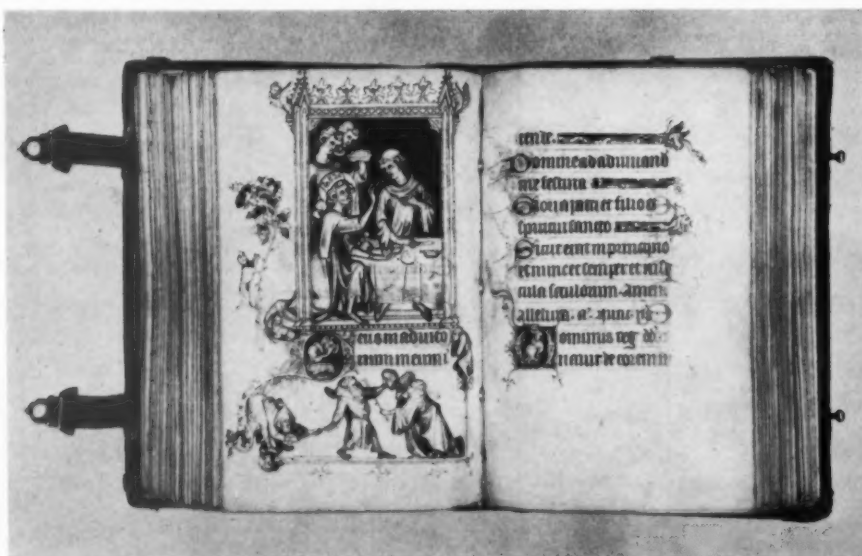 Deus in adiuto
rium meum in
tende.
Domine ad adiuuand
me festina
Gloria patri et filio et
spiritui sancto
Sicut erat in principio
et nunc et semper et in se
cula seculorum. Amen
alleluia. a'.
Dominus